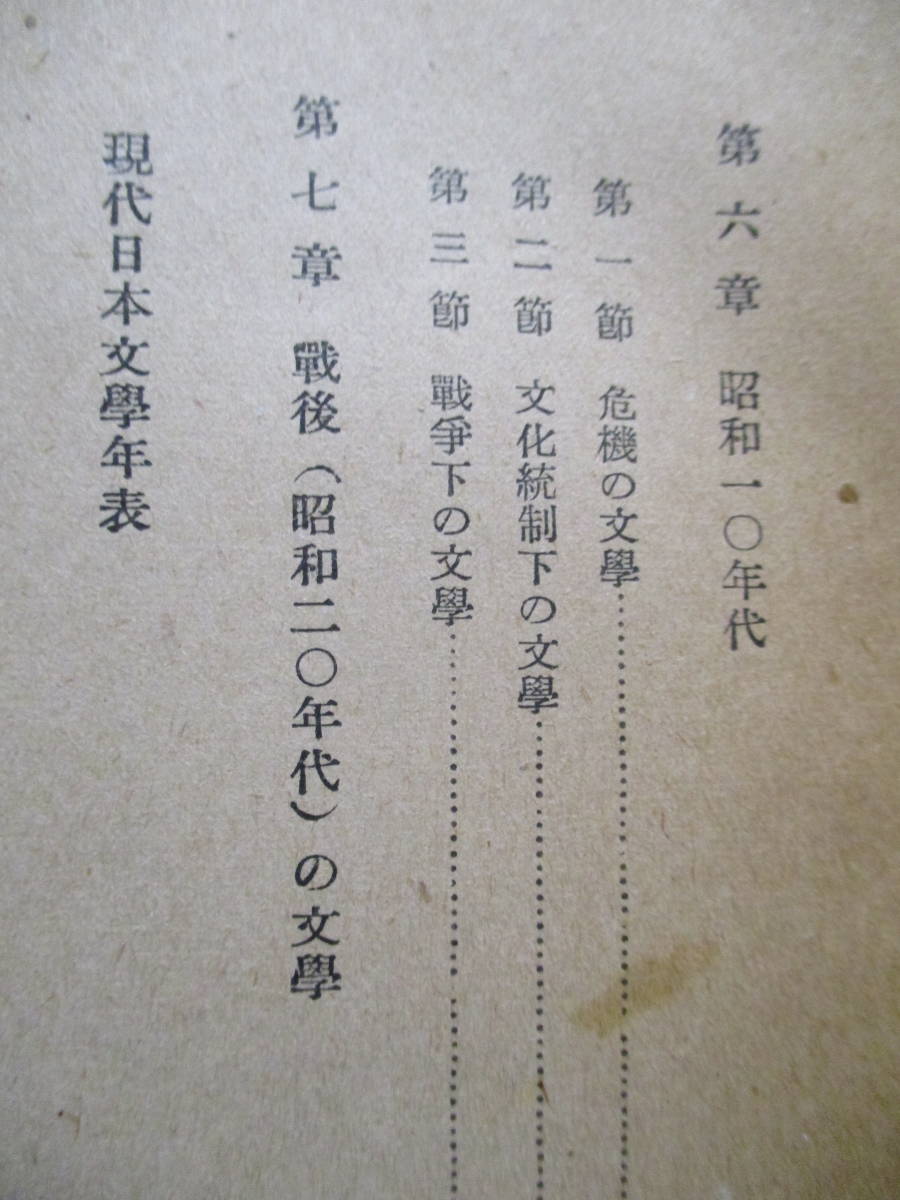 第六章　昭和一〇年代
第一節　危機の文學…………………
第二節　文化統制下の文學…………………
第三節　戰爭下の文學…………………
第七章　戰後（昭和二〇年代）の文學
現代日本文學年表